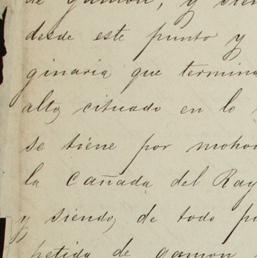 de gamon, y sien
desde este punto y
ginaria que termina
alto, cituado en lo
se tiene por mohon
la Cañada del Ray
y siendo, de todo po
petida de gamon